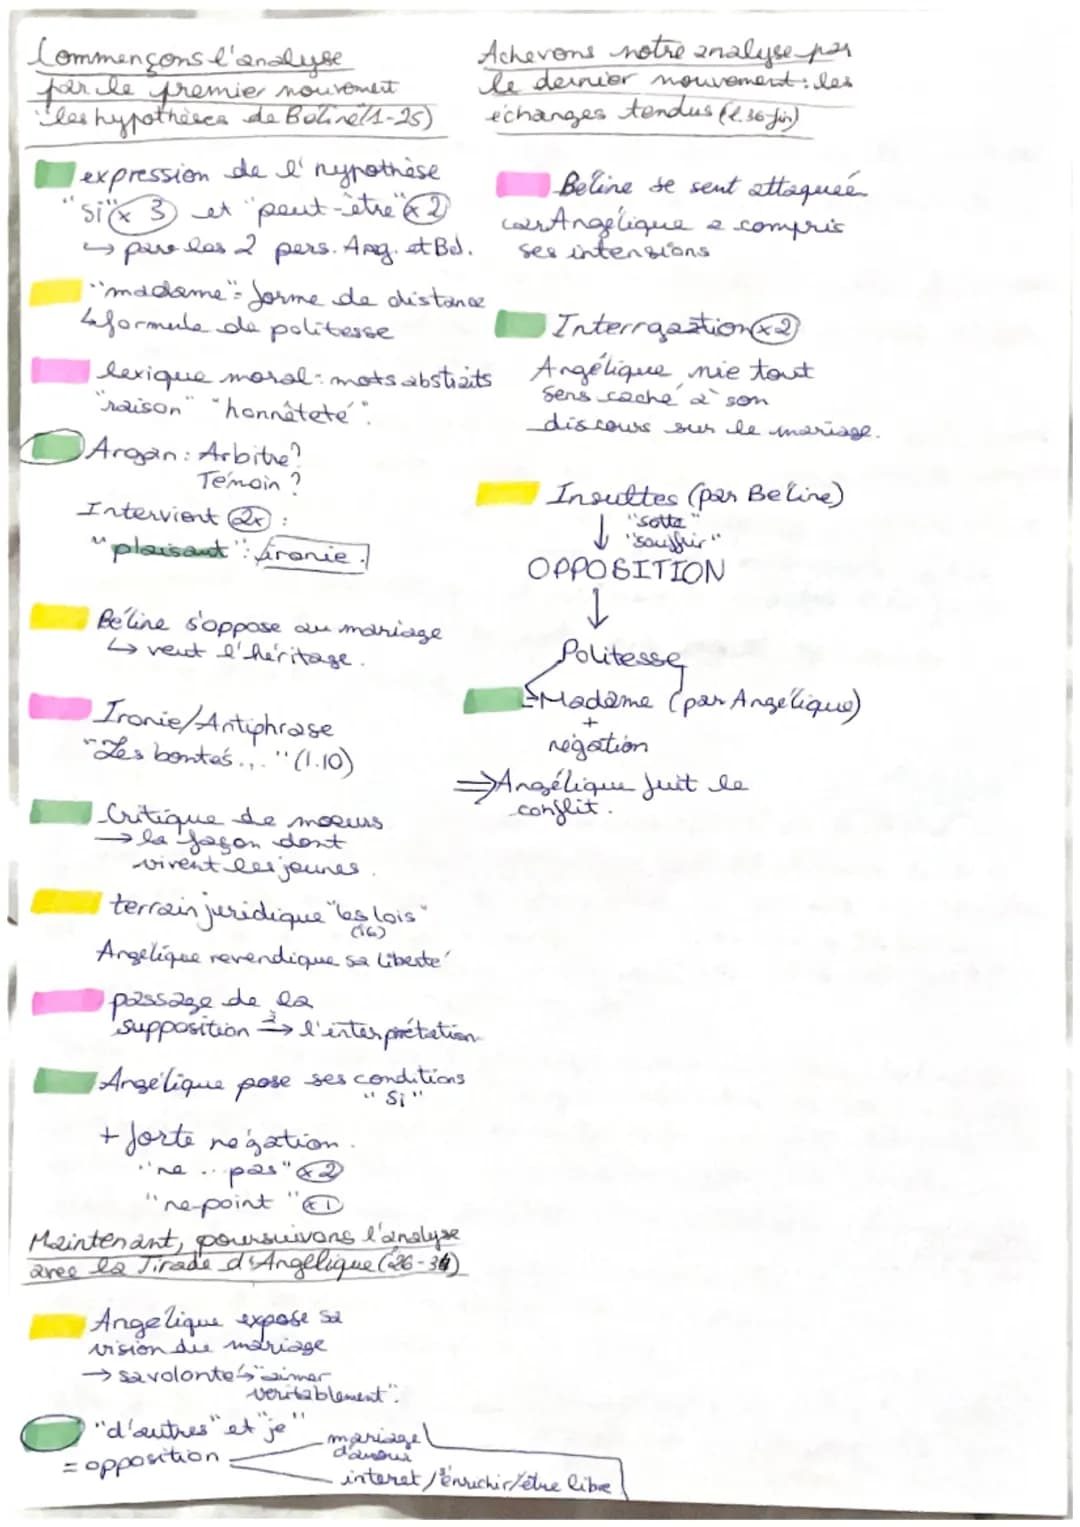 Commençons l'analyse
par le premier mouvement
les hypothèses de Béline (1-25)
expression de l'hypothèse
"Si" x 3 et "peut-être" x 2
↳ par les 2 pers. Ang. et Bel.
"madame" = forme de distance
↳ formule de politesse
lexique moral : mots abstraits
"raison" "honnêteté".
Argan : Arbitre?
Témoin ?
Intervient 2x :
"plaisant" : ironie.
Béline s'oppose au mariage
↳ veut l'héritage.
Ironie/Antiphrase
"Les bontés..." (l.10)
Critique de moeurs
→ la façon dont
vivent les jeunes.
terrain juridique "les lois"
(16)
Angélique revendique sa liberté
passage de la
supposition → l'interprétation
Angélique pose ses conditions
"Si"
+ forte négation.
"ne .. pas" x2
"ne-point" x1
Maintenant, poursuivons l'analyse
avec la Tirade d'Angélique (26-34)
Angelique expose sa
vision du mariage
→ sa volonté ↳ "aimer
véritablement".
"d'autres" et "je"
= opposition
mariage
d'amour
interet / enrichir/être libre
Achevons notre analyse par
le dernier mouvement : les
échanges tendus (l.36-fin)
Beline se sent attaqueé
car Angélique a compris
ses intensions
Interrgaation x2
Angélique nie tout
sens caché à son
discours sur le mariage.
Insultes (par Beline)
↓ "sotte"
"souffrir"
OPPOSITION
↓
Politesse
Madame (par Angélique)
+
négation
⇒ Angélique fuit le
conflit.